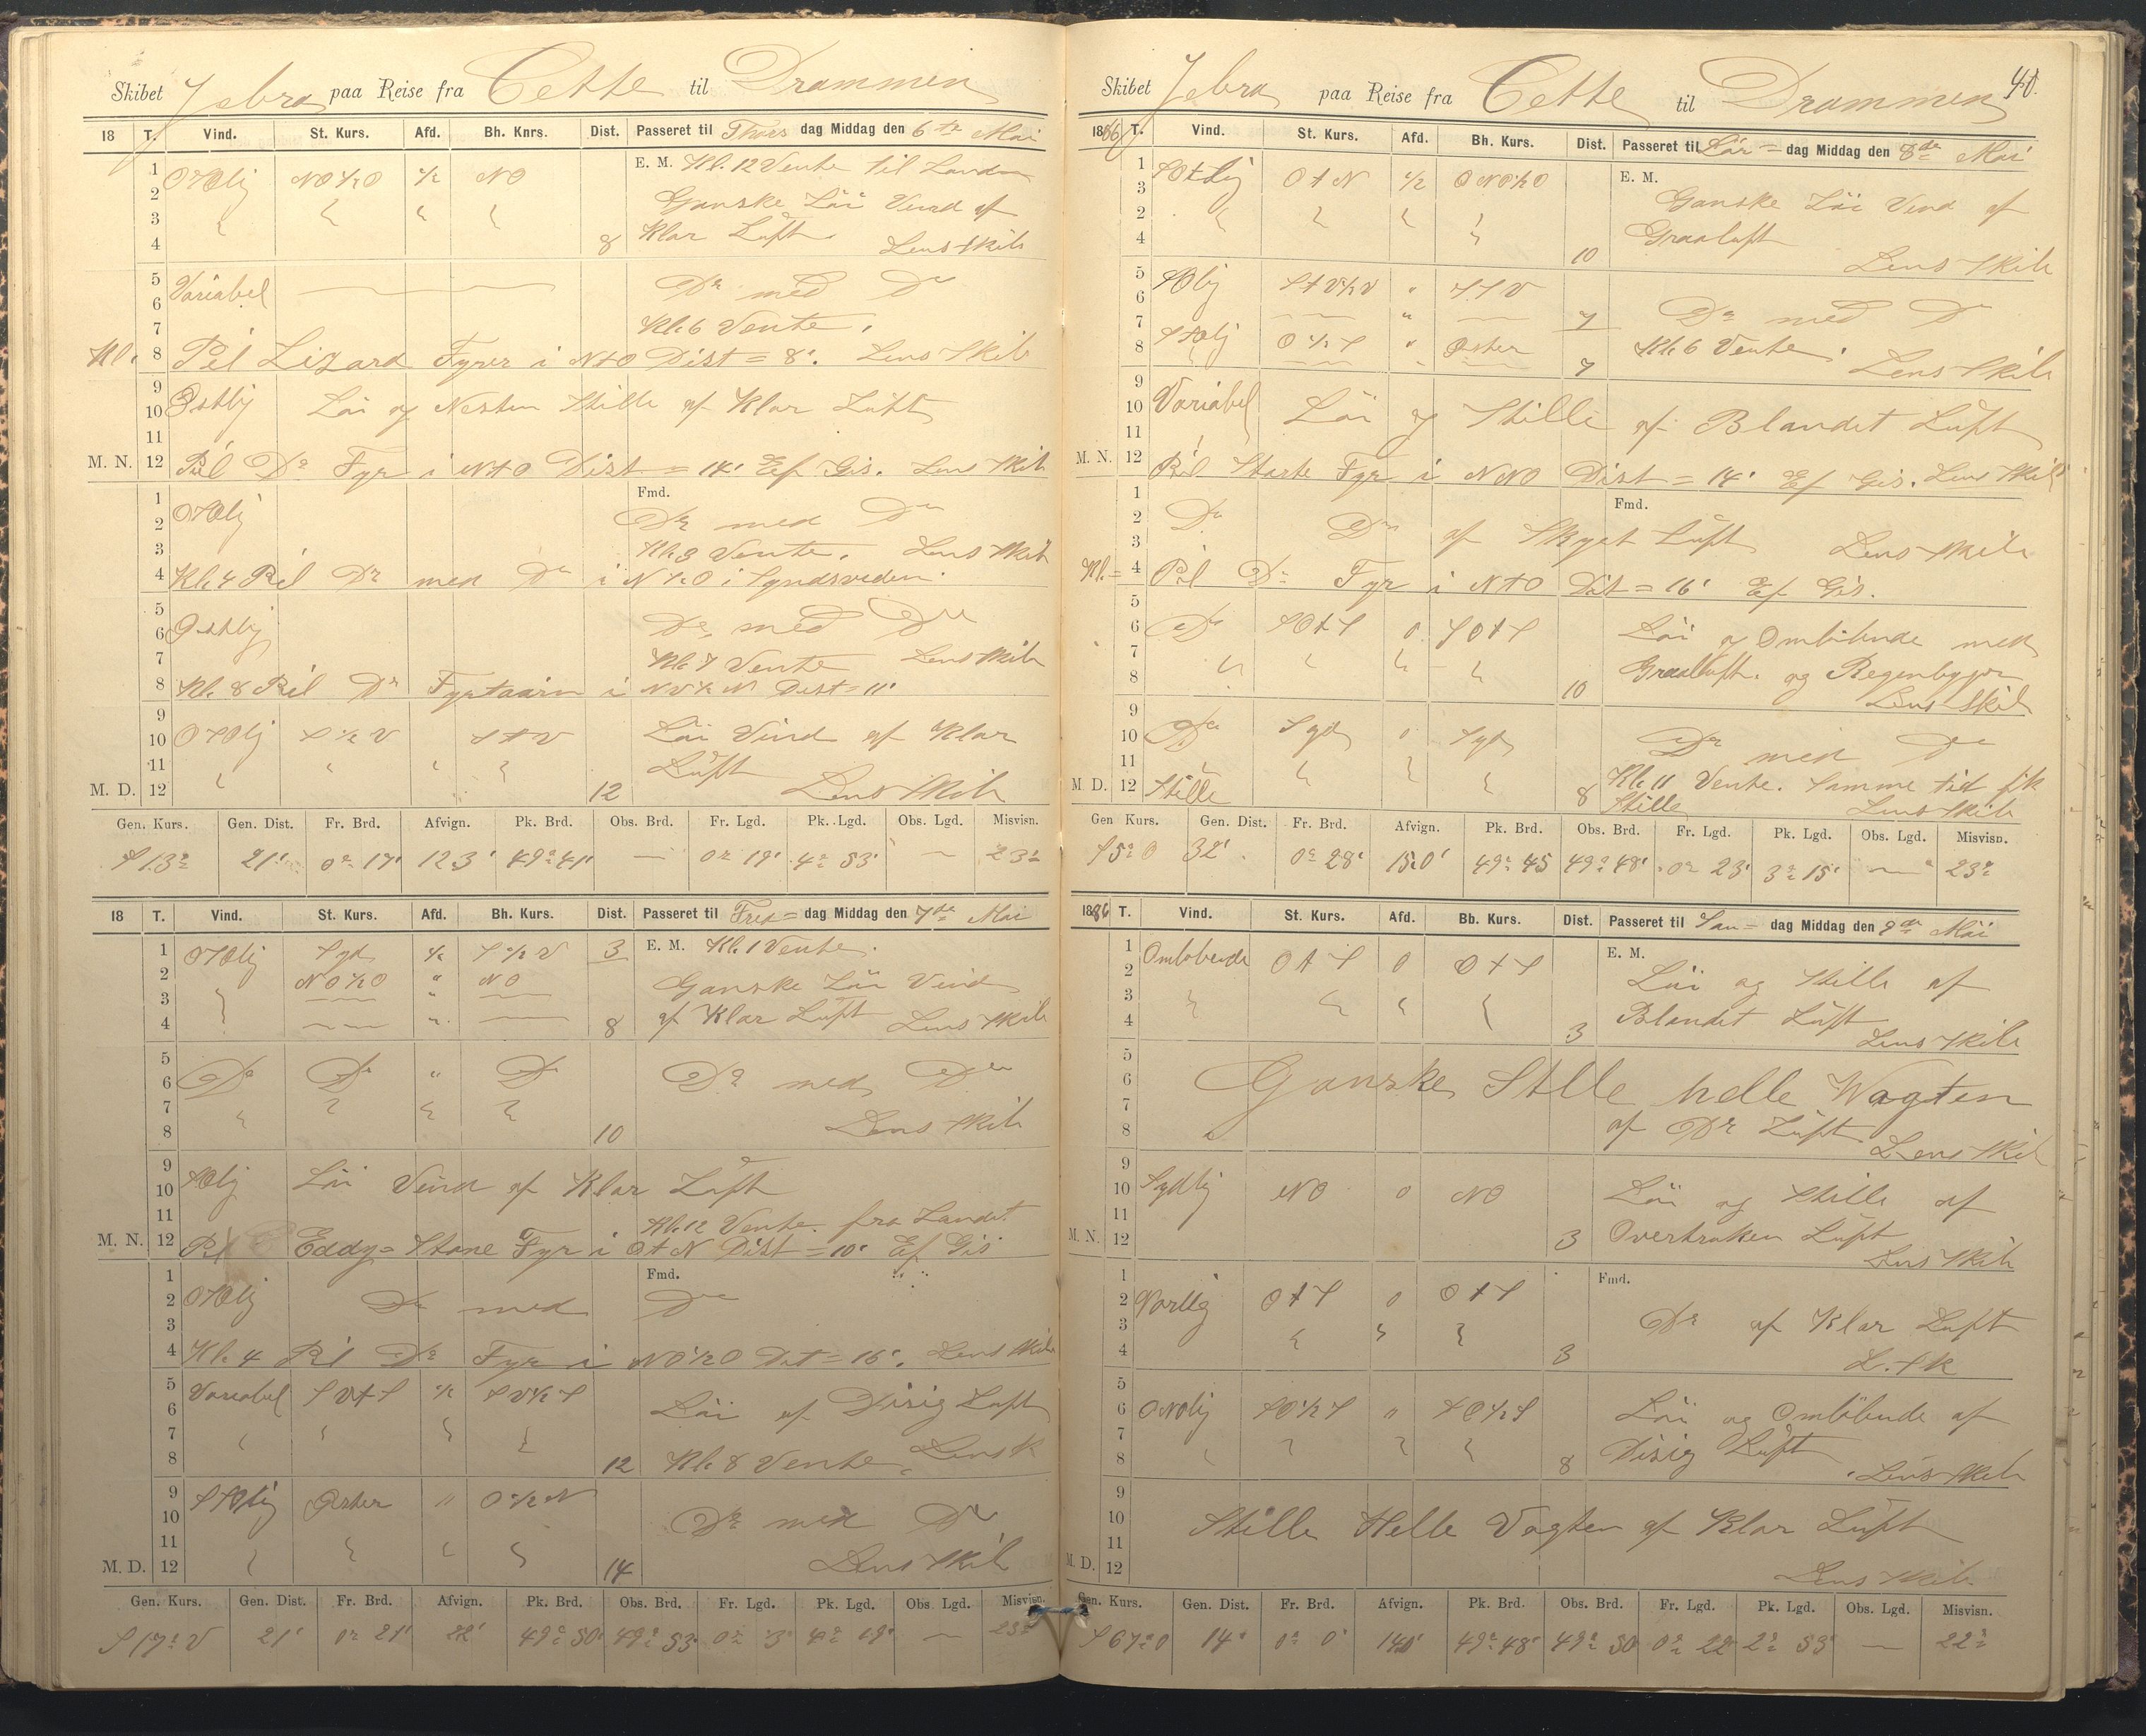 Skibet Zebra paa Reise fra Cette til Drammen
18 T. Vind. St. Kurs. Afd. Bh. Knrs. Dist. Passeret til Thors dag Middag den 6te Mai
1 OSOlig NO½O ½ NO E. M. Kl. 12 Vente til Landen
2 Ganske Löi Vind af
3 Klar Luft
4 8 Lens Skib
5 Variabel Do med Do
6
7 Kl. 6 Vente.
Kl. 8 Peil Lizard Fyrer i NtO Dist = 8'. Lens Skib
9
10 Ostlig Löi og Nesten Stille af Klar Luft
11
M. N. 12 Peil Do Fyr i NtO Dist = 14' Ef Gis. Lens Skib
1 Fmd.
2 OSOlig Do med Do
3 Kl. 3 Vente. Lens Skib
4 Kl. 4 Peil Do med Do i N½O i Syndsreden.
5
6 Ostlig Do med Do
7 Kl. 7 Vente Lens Skib
8 Kl. 8 Peil Do Fyrtaarn i NV½N Dist = 11'
9
10 OSOlig S½V StV Löi Vind af Klar
11 Luft
M. D. 12 12 Lens Skib
Gen. Kurs. Gen. Dist. Fr. Brd. Afvign. Pk. Brd. Obs. Brd. Fr. Lgd. Pk. Lgd. Obs. Lgd. Misvisn.
S 13° 21' 0° 17' 123' 49° 41' — 0° 19' 4° 53' — 23°
18 T. Vind. St. Kurs. Afd. Bh. Kurs. Dist. Passeret til Fre= dag Middag den 7de Mai
1 OSOlig Syd ½ S½V 3 E. M. Kl. 1 Vente.
2 NO½O " NO Ganske Löi Vind
3 "
4 8 af Klar Luft Lens Skib
5
6 Do Do " Do Do med Do
7
8 10 Lens Skib
9
10 SOlig Löi Vind af Klar Luft
11 Kl. 12 Vente fra Landet
M. N. 12 Pl Eddy=Stone Fyr i OtN Dist = 10' Ef Gis
1 Fmd.
2 OSOlig Do med Do
3
4 Kl. 4 Pl Do Fyr i NO½O Dist = 16'. Lens Skib
5 Variabel SVtS ½ SV½S
6 Löi af Disig Luft
7
8 12 Kl. 8 Vente. Lens K
9 SSOlig Oster " O½N
10 Do med Do
11
M. D. 12 14 Lens Skib
Gen. Kurs. Gen. Dist. Fr. Brd. Afvign. Pk. Brd. Obs. Brd. Fr. Lgd. Pk. Lgd. Obs. Lgd. Misvisn.
S 17° V 21' 0° 21' 22' 49° 50' 49° 53' 0° 3' 4° 19' — 23°
Skibet Zebra paa Reise fra Cette til Drammen
1886 T. Vind. St. Kurs. Afd. Bh. Kurs. Dist. Passeret til Lör= dag Middag den 8de Mai
1 SOtlig OtN ½ ONO½O E. M.
3 Ganske Löi Vind af
2 Graaluft
4 10 Lens Skib
5 SOlig StV½V " SSV
6 Do med Do
7 " 7
8 SSOlig O½S " Oster 7 Kl. 6 Vente. Lens Skib
9
10 Variabel Löi og Stille af Blandet Luft
11
M. N. 12 Peil Starte Fyr i NNO Dist = 14' Ef Gis. Lens Skib
1 Fmd.
2 Do Do af Skyet Luft
3 Lens Skib
Kl.= 4 Peil Do Fyr i NtO Dist = 16' Ef Gis.
5
6 Do SOtS 0 SOtS Löi og Omlöbende med
7 Graaluft. og Regenbyger
8 10 Lens Skib
9
10 Do Syd 0 Syd Do med Do
11 Kl. 11 Vente. Samme tid fik
M. D. 12 Stille 8 Stille Lens Skib
Gen Kurs. Gen. Dist. Fr. Brd. Afvign. Pk. Brd. Obs. Brd. Fr. Lgd. Pk. Lgd. Obs. Lgd. Misvisn.
S 5° O 32' 0° 28' 15.0' 49° 45 49° 48' 0° 23' 3° 15' — 23°
1886 T. Vind. St. Kurs. Afd. Bb. Kurs. Dist. Passeret til Søn= dag Middag den 9de Mai
1 Omlöbende OtS 0 OtS E. M.
2 Löi og Stille af
3 Blandet Luft
4 3 Lens Skib
5
6 Ganske Stille helle Wagten
7
8 af Do Luft Lens Skib
9
10 Sydlig NO 0 NO Löi og Stille af
11 Overtruken Luft
M. N. 12 3 Lens Skib
1 Fmd.
2 Norllig OtS 0 OtS
3 Do af Klar Luft
4 3 L. Sk
5
6 ONOlig SO½S " SO½S Löi og Omlöbende af
7 Disig Luft
8 8 Lens Skib
9
10 Stille Helle Vagten af Klar Luft
11
M. D. 12 Lens Skib
Gen. Kurs. Gen. Dist. Fr. Brd. Afvign. Pk. Brd. Obs. Brd. Fr. Lgd. Pk. Lgd. Obs. Lgd. Misvisn.
S 67° O 14' 0° 0' 140' 49° 48' 49° 50 0° 22 2° 53' — 22°